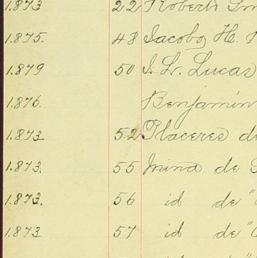 1873 22 Roberto
1875. 48 Jacobo H.
1879 50 S. Lr. Lucas
1876. Benjamin
1873 52 Placeres
1873. 55 Mina de
1873. 56 id de "
1873 57 id de "